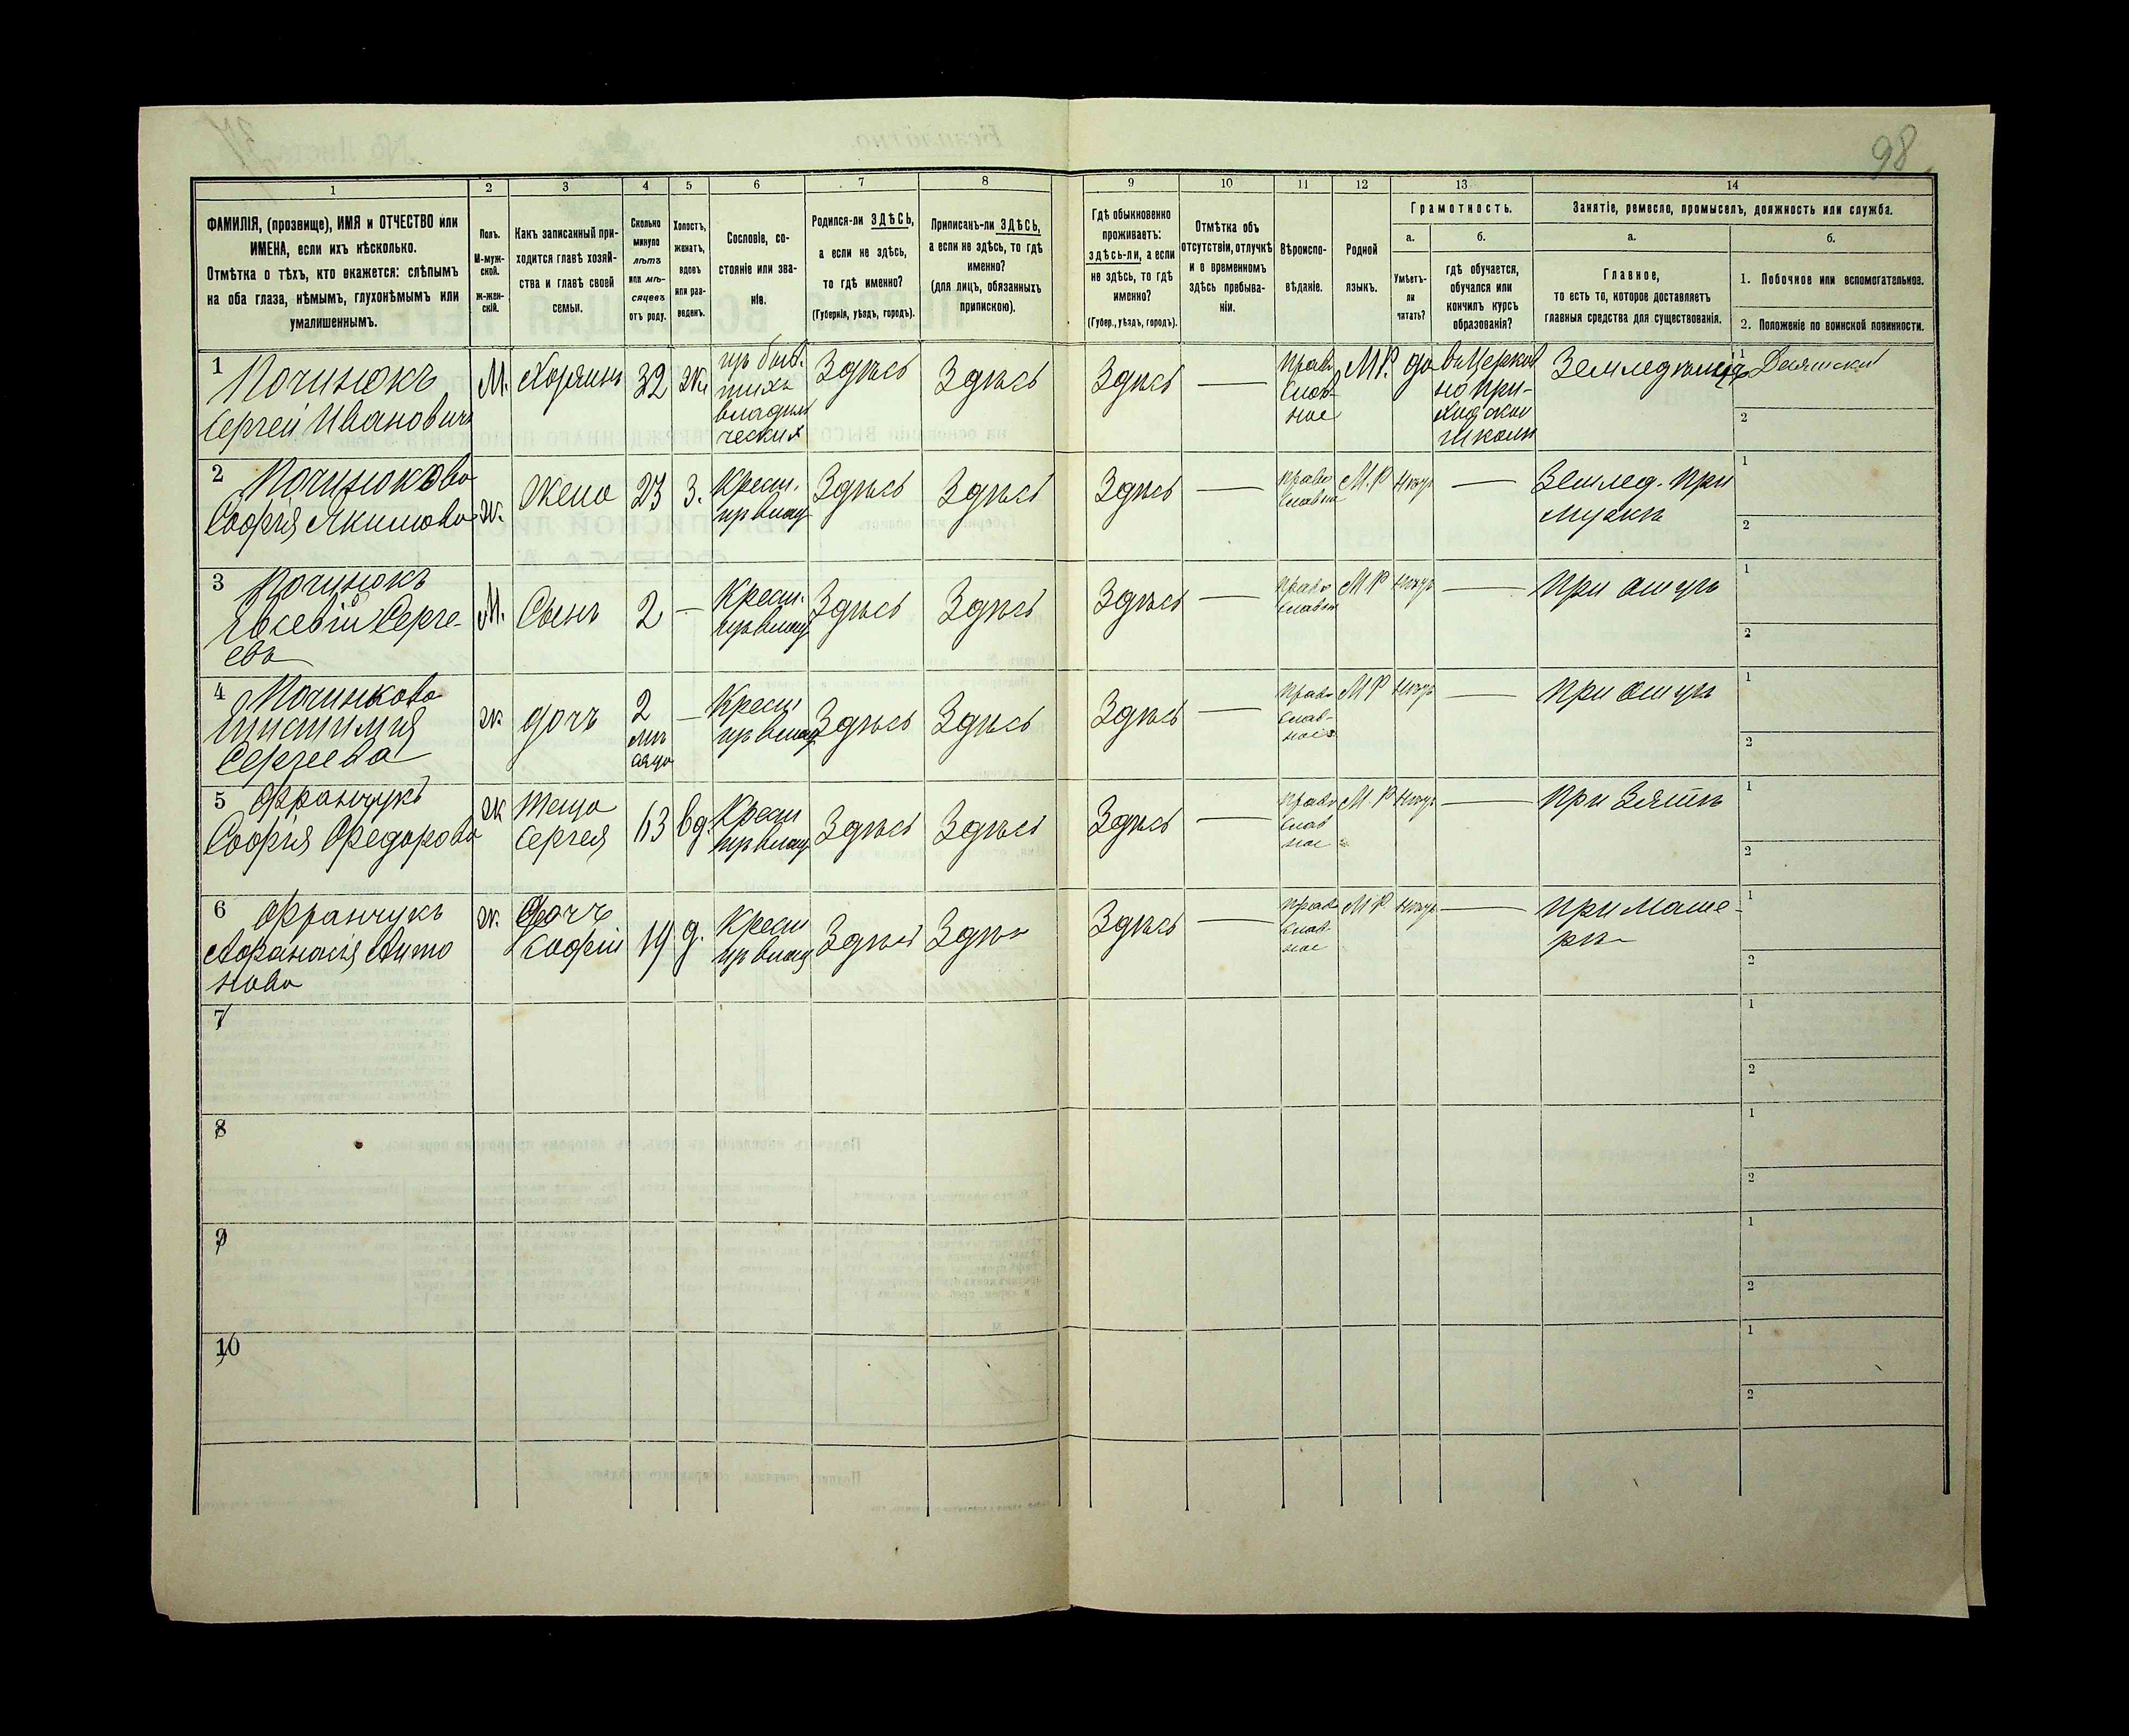 98
1 2 3 4 5 6 7 8 9 10 11 12 13 14
ФАМИЛІЯ, (прозвище), ИМЯ и ОТЧЕСТВО или
ИМЕНА, если ихъ нѣсколько.
Отмѣтка о тѣхъ, кто окажется: слѣпымъ
на оба глаза, нѣмымъ, глухонѣмымъ или
умалишеннымъ.
Полъ.
М-муж-
ской.
Ж-жен-
скій.
Какъ записанный при-
ходится главѣ хозяй-
ства и главѣ своей
семьи.
Сколько
минуло
лѣтъ
или мѣ-
сяцевъ
отъ роду.
Холостъ,
женатъ,
вдовъ
или раз-
веденъ.
Сословіе, со-
стояніе или зва-
ніе.
Родился-ли ЗДѢСЬ,
а если не здѣсь,
то гдѣ именно?
(Губернія, уѣздъ, городъ).
Приписанъ-ли ЗДѢСЬ,
а если не здѣсь, то гдѣ
именно?
(для лицъ, обязанныхъ
припискою).
Гдѣ обыкновенно
проживаетъ:
здѣсь-ли, а если
не здѣсь, то гдѣ
именно?
(Губер., уѣздъ, городъ).
Отмѣтка объ
отсутствіи, отлучкѣ
и о временномъ
здѣсь пребыва-
ніи.
Вѣроиспо-
вѣданіе.
Родной
языкъ.
Грамотность.
а.
Умѣетъ-
ли
читать?
б.
гдѣ обучается,
обучался или
кончилъ курсъ
образованія?
Занятіе, ремесло, промыселъ, должность или служба.
а.
Главное,
то есть то, которое доставляетъ
главныя средства для существованія.
б.
1. Побочное или вспомогательное.
2. Положеніе по воинской повинности.
1
Починюкъ
Сергей Ивановичъ
М.
Хозяинъ
32
Ж.
изъ быв.
шихъ
владѣль
ческихъ
Здѣсь
Здѣсь
Здѣсь
—
право
слав-
ное
М.Р.
да
въ Церков
но при-
ходской
школѣ
Земледѣлецъ
1
2
2
Починюкова
Софія Якимова
Ж.
Жена
23
З.
Крест.
изъ влад
Здѣсь
Здѣсь
Здѣсь
—
право
славн
М.Р
нѣтъ
—
Землед. при
мужѣ
1
2
3
Починюкъ
Евсевій Серге-
евъ
М.
Сынъ
2
—
Крест.
изъ влад
Здѣсь
Здѣсь
Здѣсь
—
право
славн
М Р
нѣтъ
—
при отцѣ
1
2
4
Починюкова
Сергеева
ж
дочь
2
мѣ
сяца
—
Крест
изъ влад
Здѣсь
Здѣсь
Здѣсь
—
право
слав-
ное
М Р
нѣтъ
—
при отцѣ
1
2
5
Франчукъ
Софія Федорова
Ж
теща
Сергея
63
вд.
Крест
изъ влад
Здѣсь
Здѣсь
Здѣсь
—
право
слав
ное
М. Р
нѣтъ
—
при зятѣ
1
2
6
Франчукъ
Афанасія Анто
нова
ж.
Дочь
Софіи
19
д.
Крест
изъ влад
Здѣсь
Здѣсь
Здѣсь
—
право
слав
ное
М Р
нѣтъ
—
при мате-
рѣ
1
2
7
1
2
8
1
2
9
1
2
10
1
2